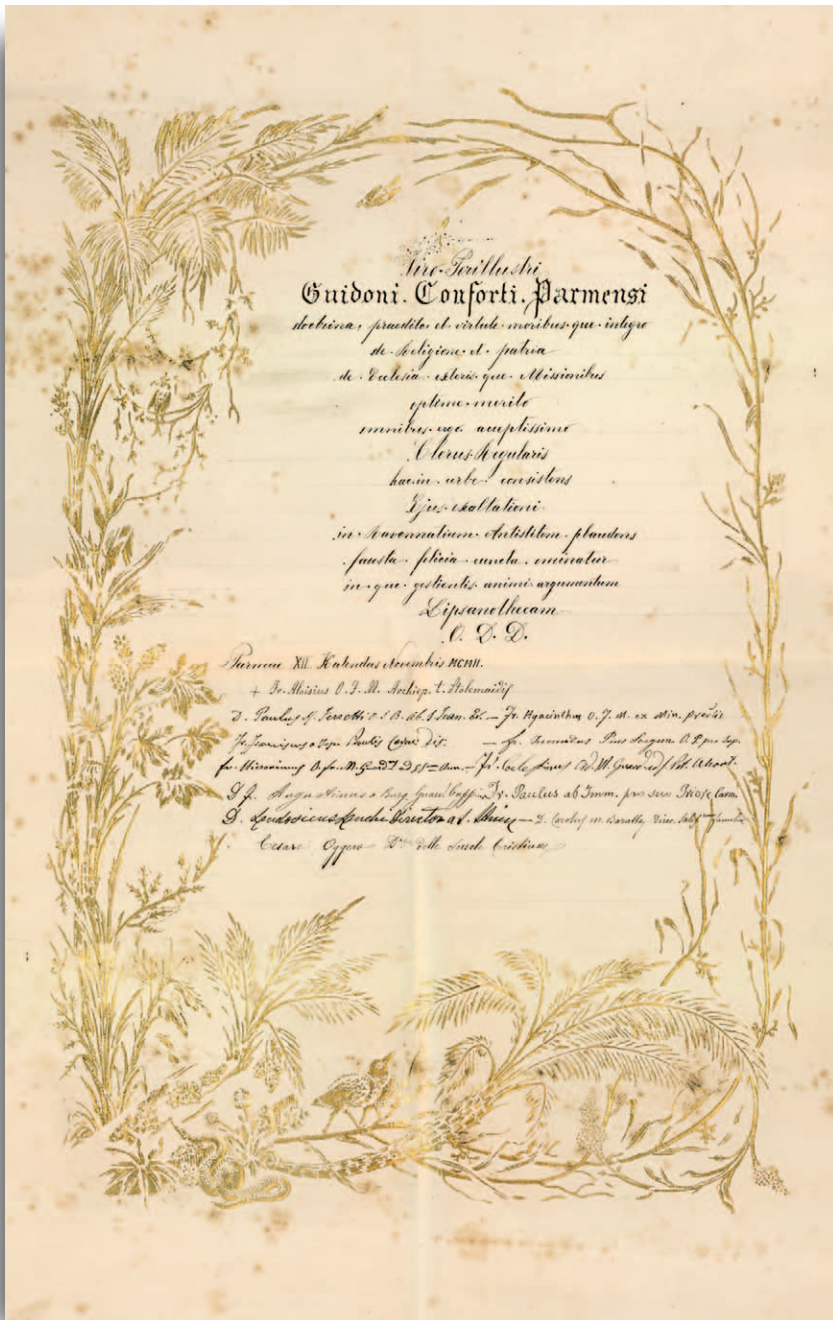 Viro Perillustri
Guidoni. Conforti. Parmensi
doctrina, praedito. et. virtute. moribus. que. integro
de. Religione. et. patria
de. Ecclesia. exteris. que. Missionibus
optime. merito
omnibus. acceptissimo
Clerus. Regularis
hac. in. urbe. consistens
Ejus. exaltationi
in. Ravennatium. Antistitem. plaudens
fausta. felicia. cuncta. ominatur
in. que. gestientis. animi. argumentum
Lipsanothecam
O. D. D.
Parmae XII Kalendas Novembris MCMII.
+ Fr. Aloisius O. F. M. Archiep. t.
D. Paulus M. Ferretti O. S. B. Ab. S. Joan. Ev. — Fr. Hyacinthus O. F. M. ex Min.
Fr. Pontis — Fr. Pius O. P.
Fr. Hieronimus — Fr.
Augustinus a Burg — Fr. Paulus ab Imm. pro suo Priore Carm.
D. Ludovicus Director — D. Carolus M. Baratta Direc.
Cesare Oggero delle Scuole Cristiane